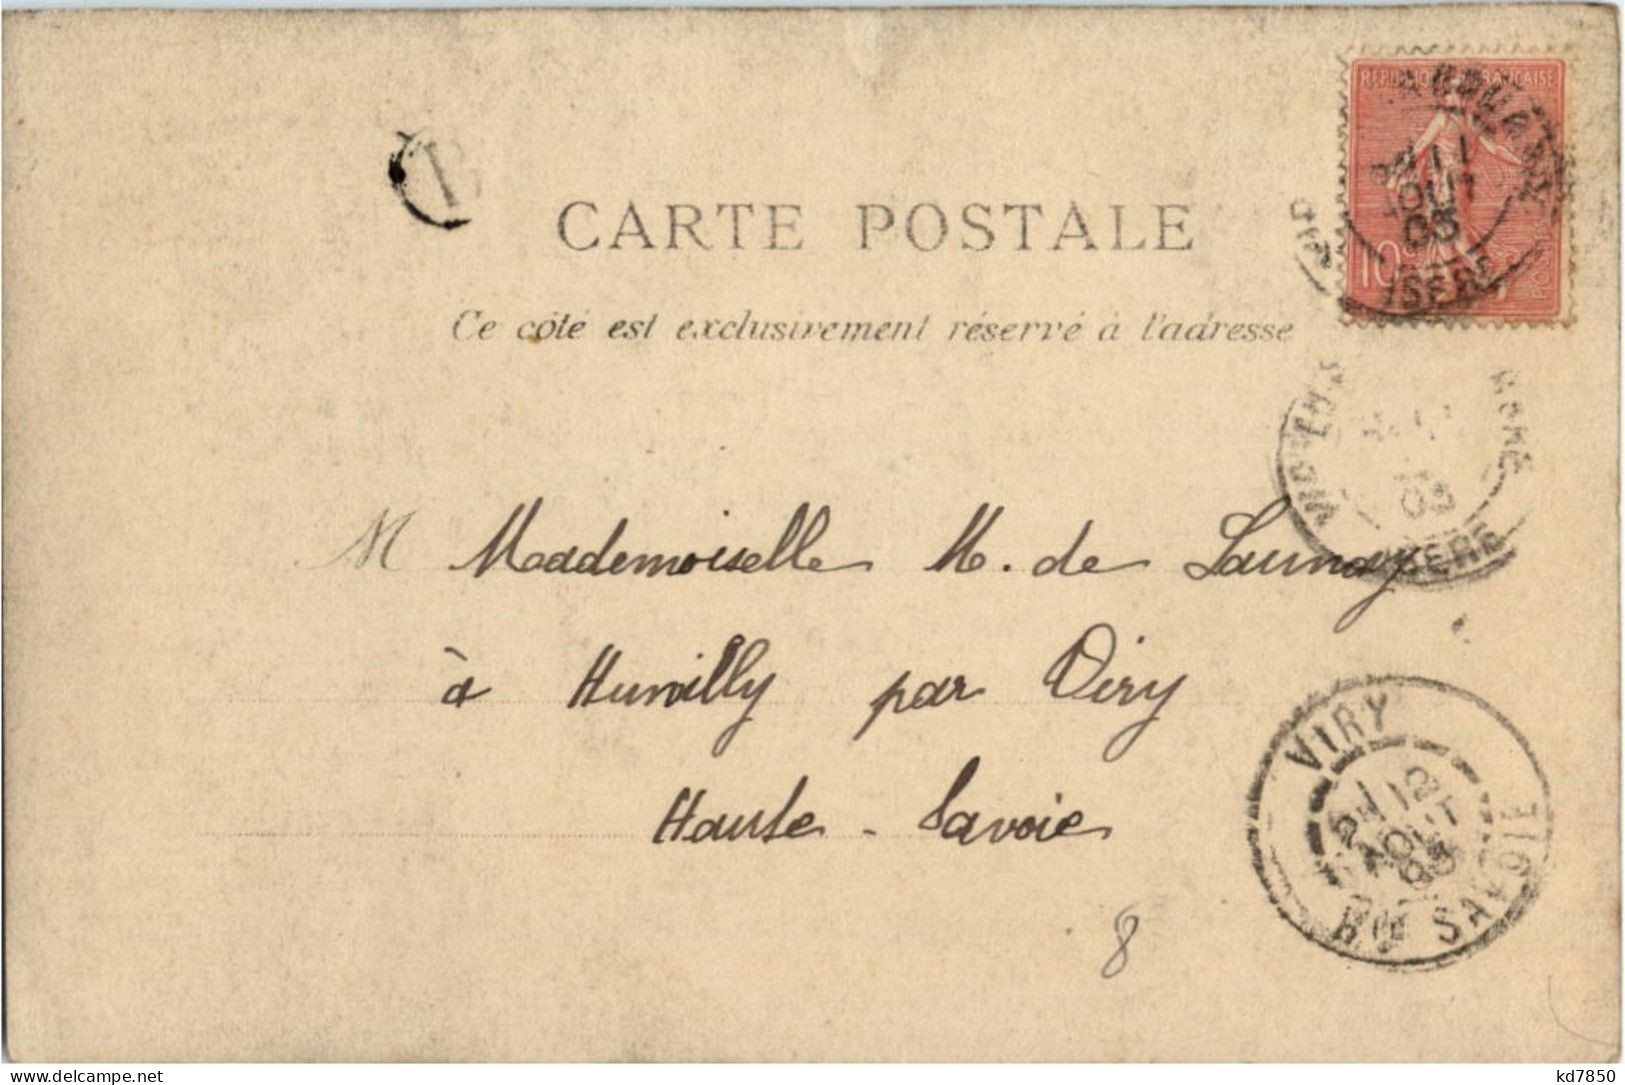 RÉPUBLIQUE FRANÇAISE
10c
11
AOUT
05
ISÈRE
B
CARTE POSTALE
Ce côté est exclusivement réservé à l'adresse
03
ISERE
M Mademoiselle M. de Launay
à Humilly par Viry
Haute-Savoie
VIRY
12
AOUT
05
HTE SAVOIE
8
delcampe.net
kd7850